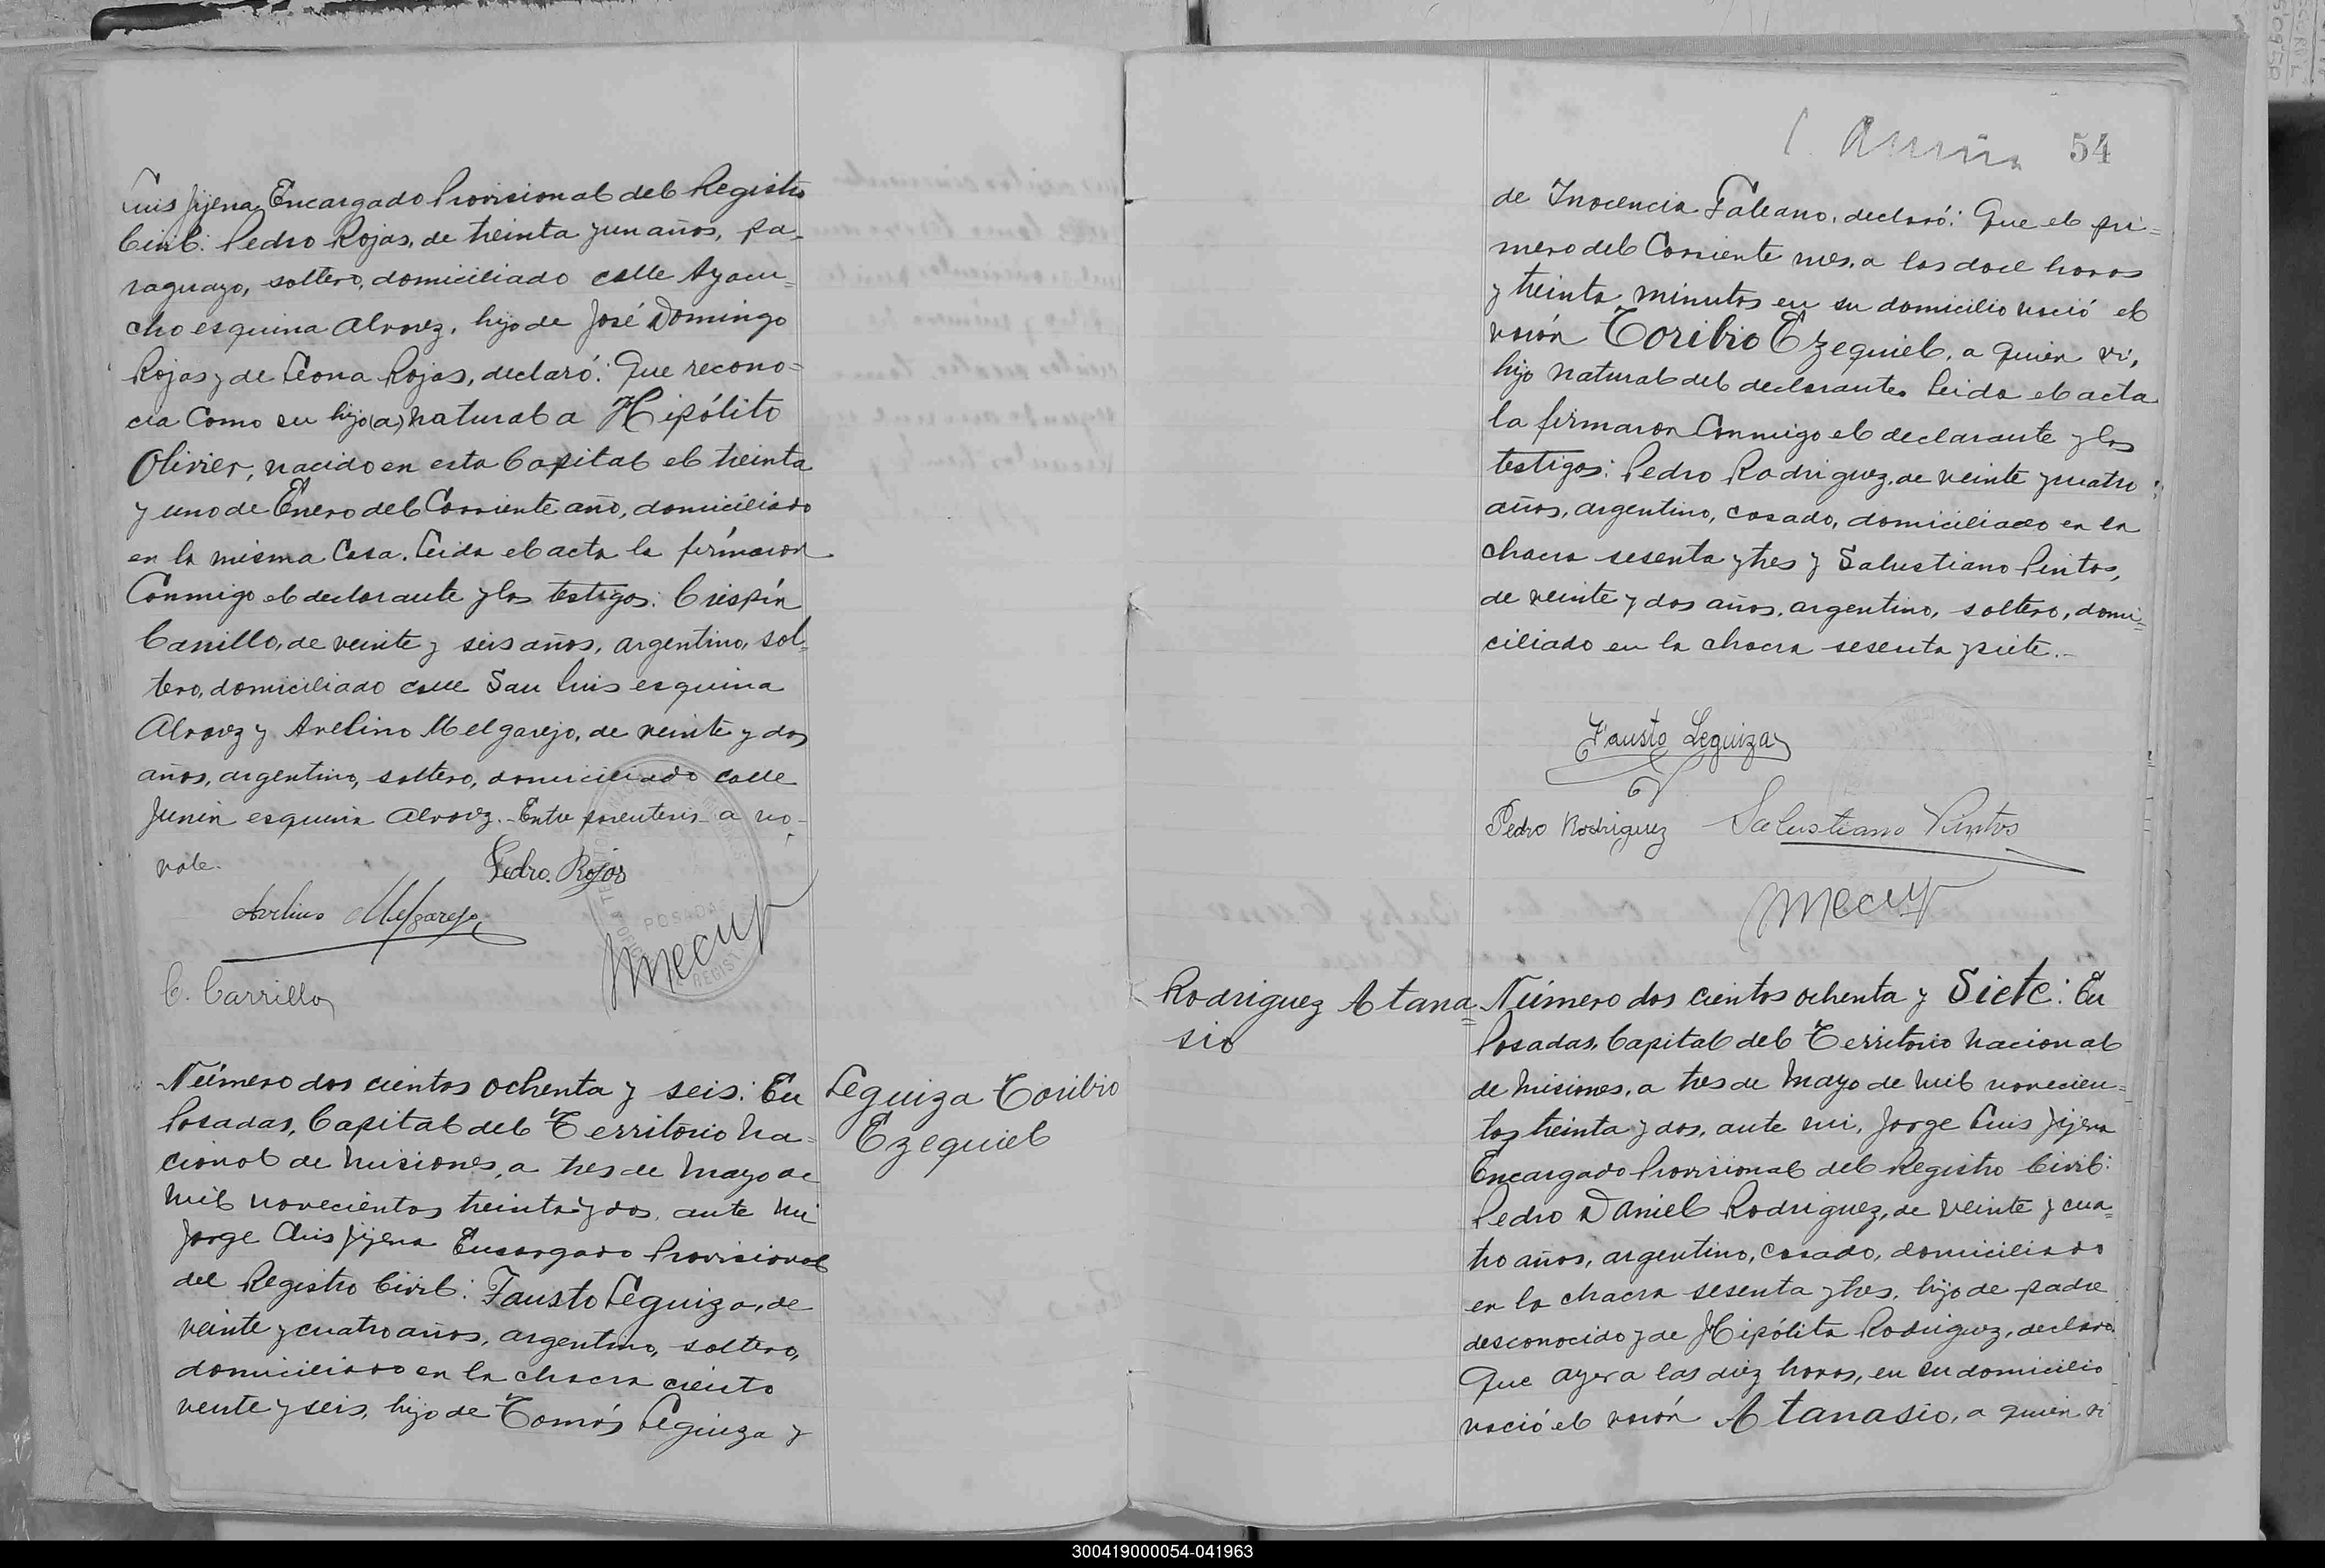 Luis Jijena Encargado Provisional del Registro
Civil: Pedro Rojas, de treinta y un años, pa-
raguayo, soltero, domiciliado calle Ayacu=
cho esquina Alvarez, hijo de José Domingo
Rojas y de Leona Rojas, declaró: Que recono=
cia como su hijo(a) natural a Hipólito
Olivier, nacido en esta Capital el treinta
y uno de Enero del Corriente año, domiciliado
en la misma Casa. Leida el acta la firmaron
Conmigo el declarante y los testigos: Crispín
Carrillo, de veinte y seis años, argentino, sol=
tero, domiciliado calle San Luis esquina
Alvarez y Avelino Melgarejo, de veinte y dos
años, argentino, soltero, domiciliado calle
Junin esquina Alvarez.- Entre parentesis a no-
vale.
Pedro. Rojas
Avelino Melgarejo
POSADAS
C. Carrillo
Número dos cientos ochenta y seis: En
Posadas, Capital del Territorio Na=
cional de Misiones, a tres de Mayo de
Mil novecientos treinta y dos, ante mi
Jorge Luis Jijena Encargado Provisional
del Registro Civil: Fausto Leguiza, de
veinte y cuatro años, argentino, soltero,
domiciliado en la chacra ciento
veinte y seis, hijo de Tomás Leguiza y
Leguiza Toribio
Ezequiel
54
de Inocencia Galeano, declaró: Que el pri=
mero del Corriente mes, a las doce horas
y treinta minutos en su domicilio nació el
varón Toribio Ezequiel, a quien vi,
hijo natural del declarante. Leida el acta
la firmaron Conmigo el declarante y los
testigos: Pedro Rodriguez, de veinte y cuatro
años, argentino, casado, domiciliado en la
chacra sesenta y tres y Salustiano Pintos,
de veinte y dos años, argentino, soltero, domi=
ciliado en la chacra sesenta y siete.-
Fausto Leguiza
Pedro Rodriguez Salustiano Pintos
Rodriguez Atana=
sio
Número dos cientos ochenta y Siete: En
Posadas, Capital del Territorio Nacional
de Misiones, a tres de Mayo de Mil novecien=
tos treinta y dos, ante mi, Jorge Luis Jijena
Encargado Provisional del Registro Civil:
Pedro Daniel Rodriguez, de veinte y cua=
tro años, argentino, casado, domiciliado
en la chacra sesenta y tres, hijo de padre
desconocido y de Hipólita Rodriguez, declaró:
Que ayer a las diez horas, en su domicilio
nació el varón Atanasio, a quien vi
300419000054-041963